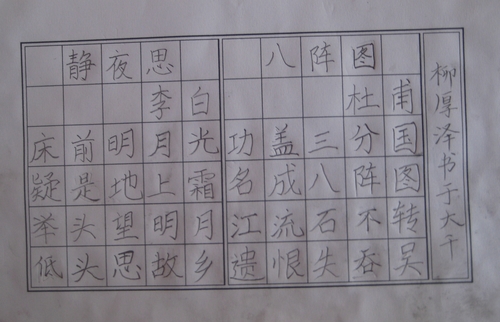 静夜思
李白
床前明月光
疑是地上霜
举头望明月
低头思故乡
八阵图
杜甫
功盖三分国
名成八阵图
江流石不转
遗恨失吞吴
柳厚泽书于大干